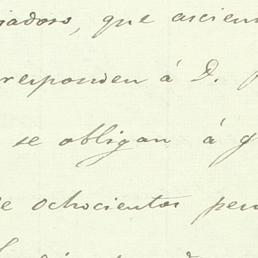 iadoso, que ascien
responden á D.
se obligan á g
e ochocientos pen